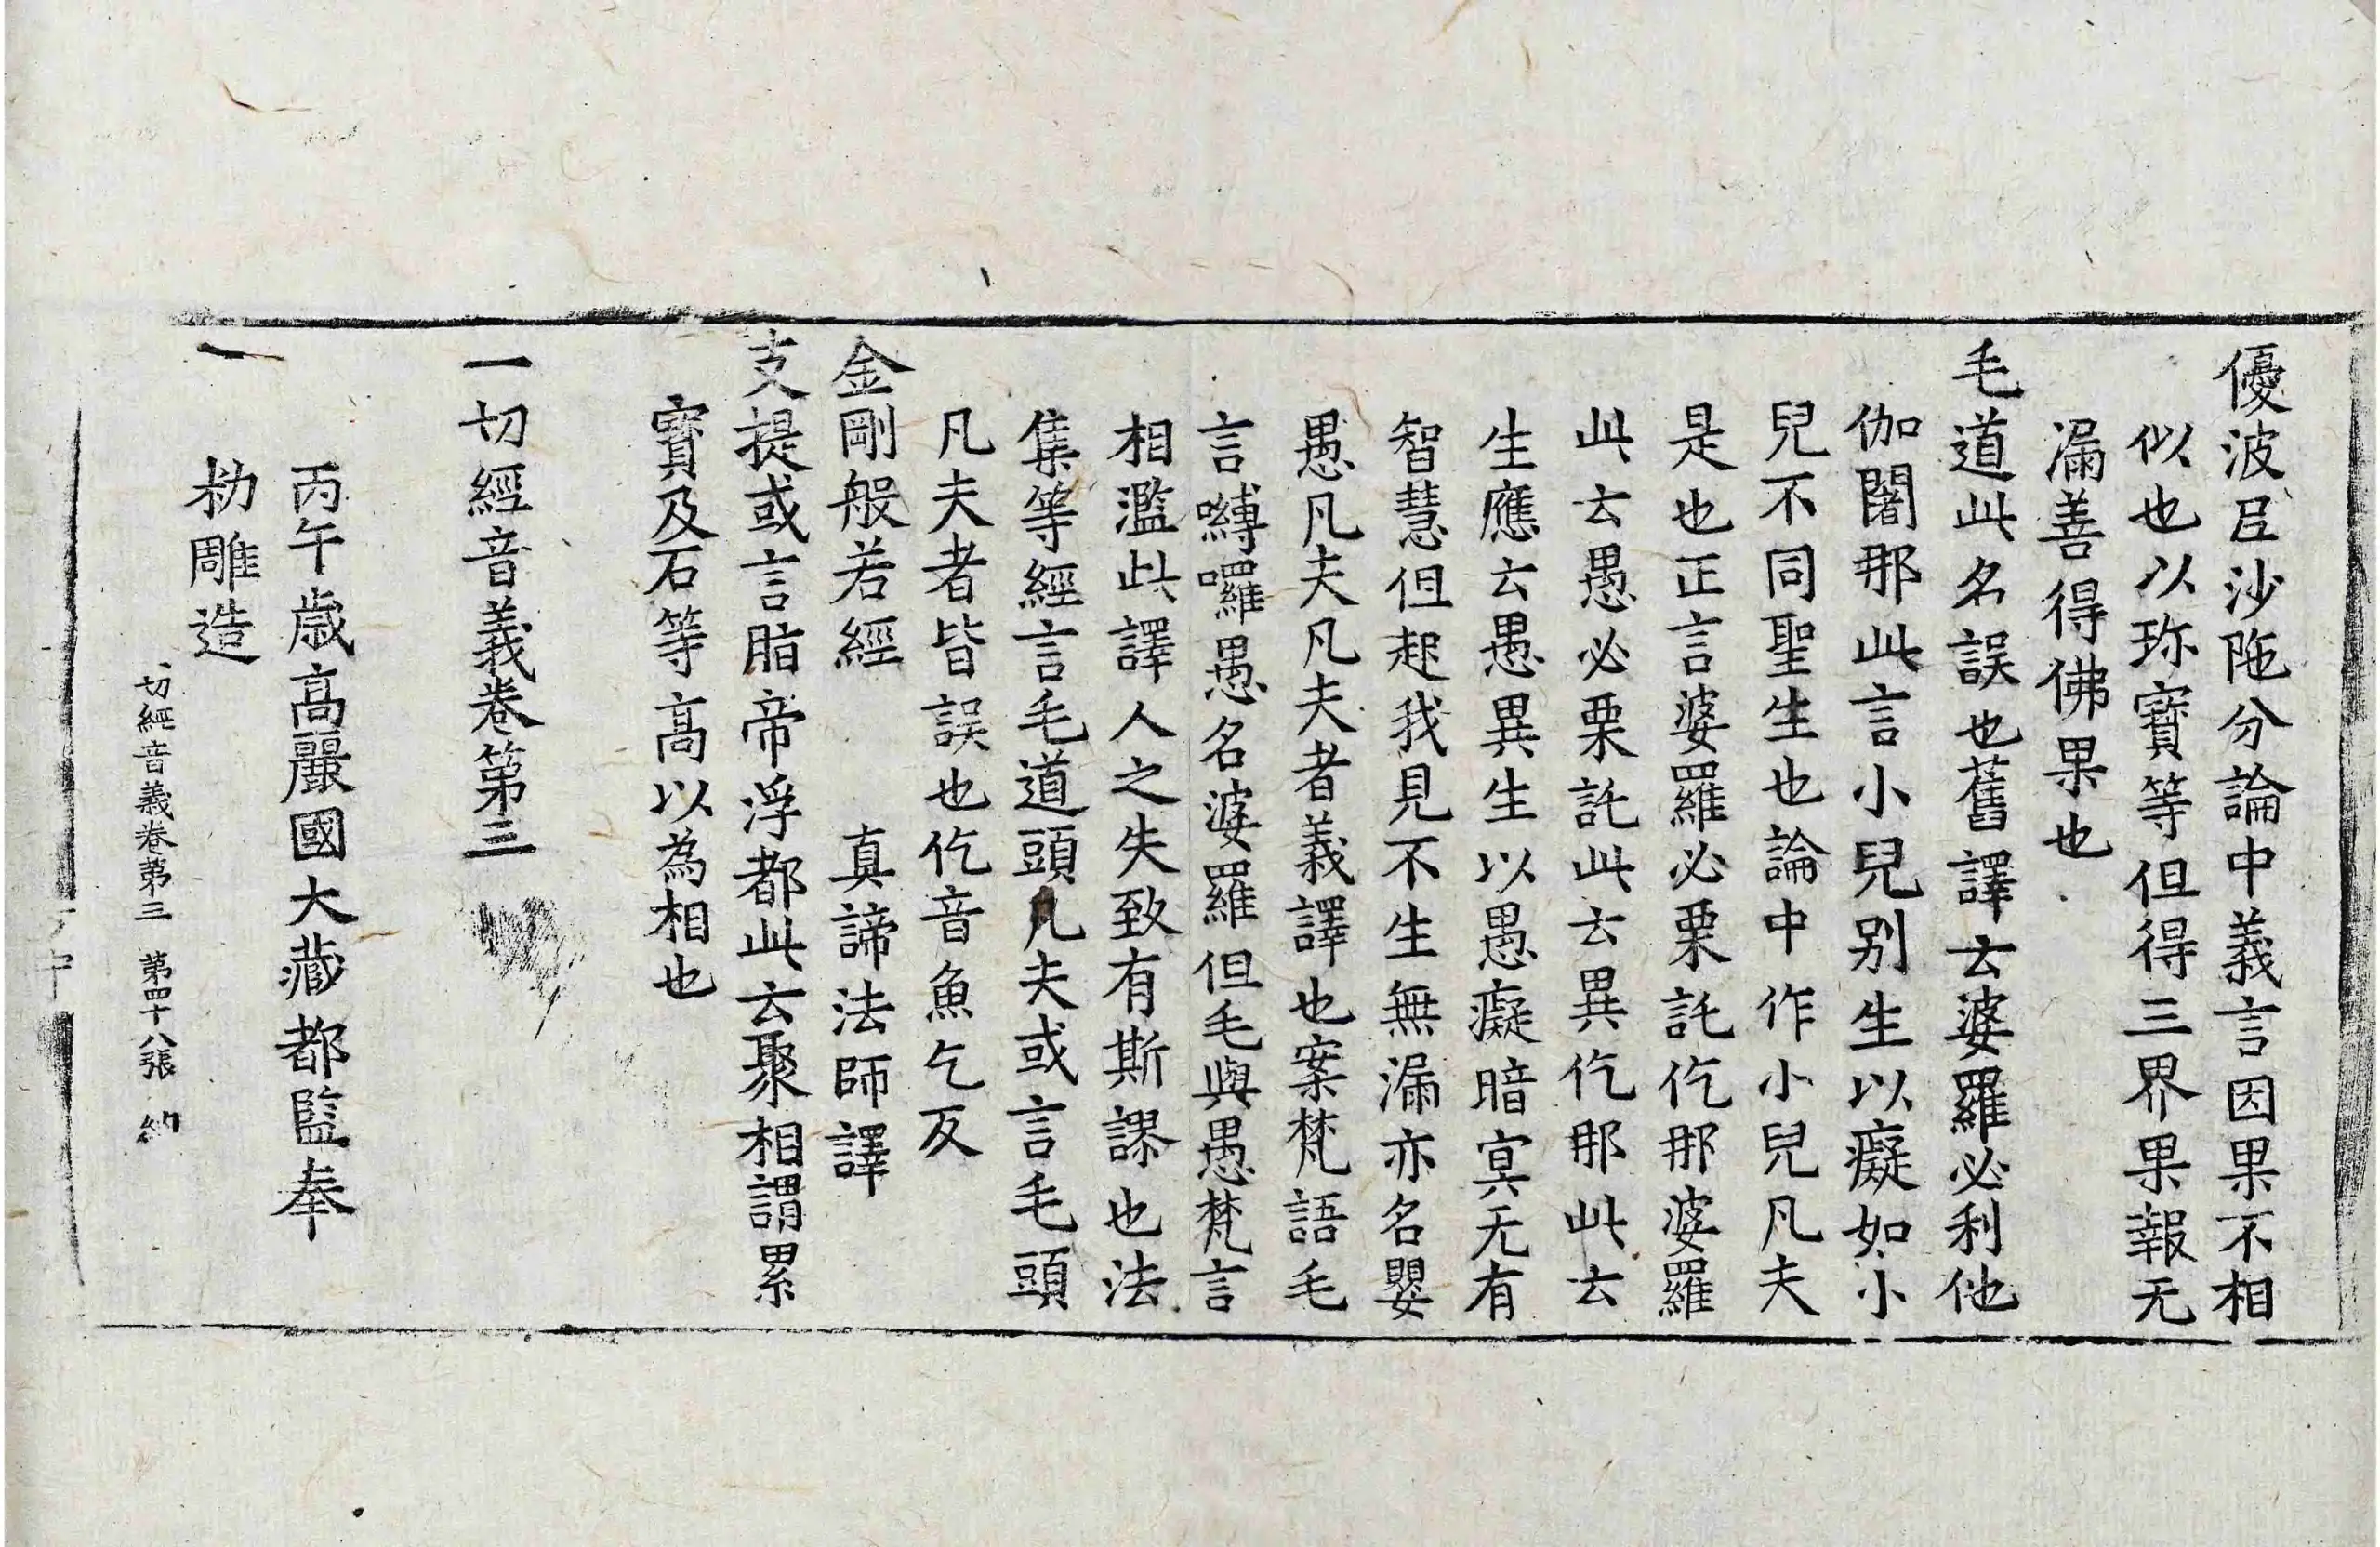 優波㠯沙陁分論中義言因果不相
似也以珎寶等但得三界果報无
漏善得佛果也
毛道此名誤也舊譯云婆羅必利他
伽闍那此言小兒别生以癡如小
兒不同聖生也論中作小兒凡夫
是也正言婆羅必栗託仡那婆羅
此云愚必栗託此云異仡那此云
生應云愚異生以愚癡暗冥无有
智慧但起我見不生無漏亦名嬰
愚凡夫凡夫者義譯也案梵語毛
言嚩囉愚名婆羅但毛與愚梵言
相濫此譯人之失致有斯謬也法
集等經言毛道頭凡夫或言毛頭
凡夫者皆誤也仡音魚乞反
金剛般若經　真諦法師譯
支提或言脂帝浮都此云聚相謂累
寶及石等高以為相也
一切經音義卷第三
丙午歳高麗國大藏都監奉
勑雕造
一切經音義卷第三　第四十八張　納